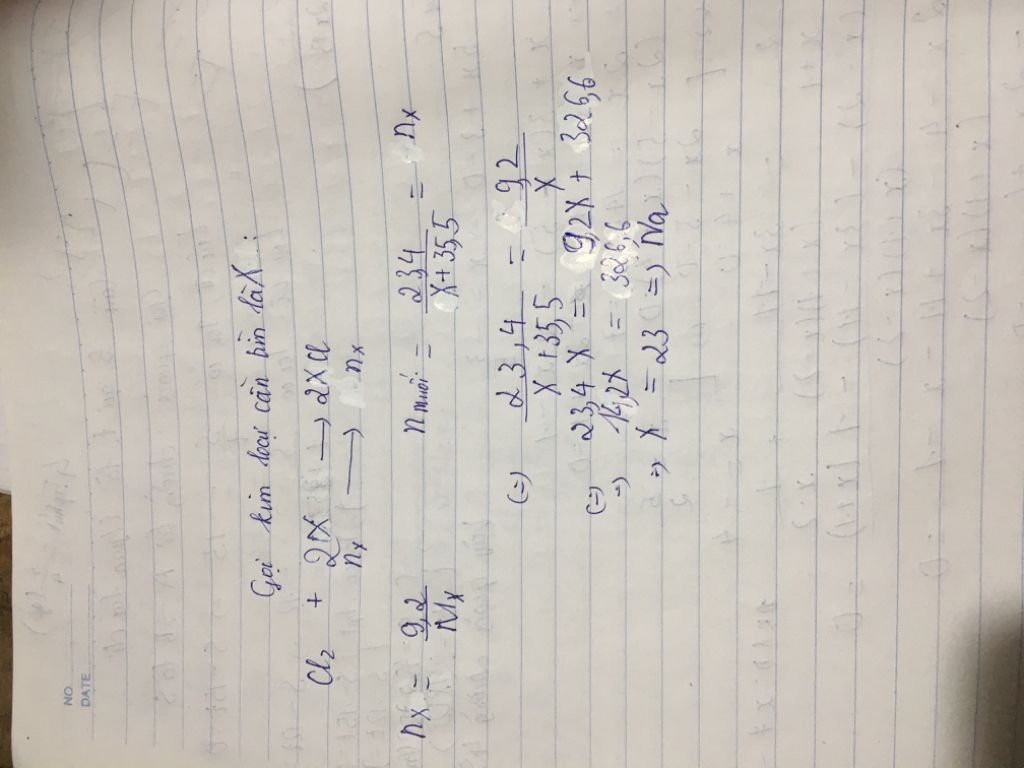 NO.
DATE
Gọi kim loại cần tìm là X:
Cl₂ + 2X → 2XCl
nₓ → nₓ
nₓ = 9,2 / Mₓ    n muối = 23,4 / X + 35,5 = nₓ
(=) 23,4 / X + 35,5 = 9,2 / X
(=) 23,4 X = 9,2X + 326,6
=) 14,2X = 326,6
=) X = 23 =) Na